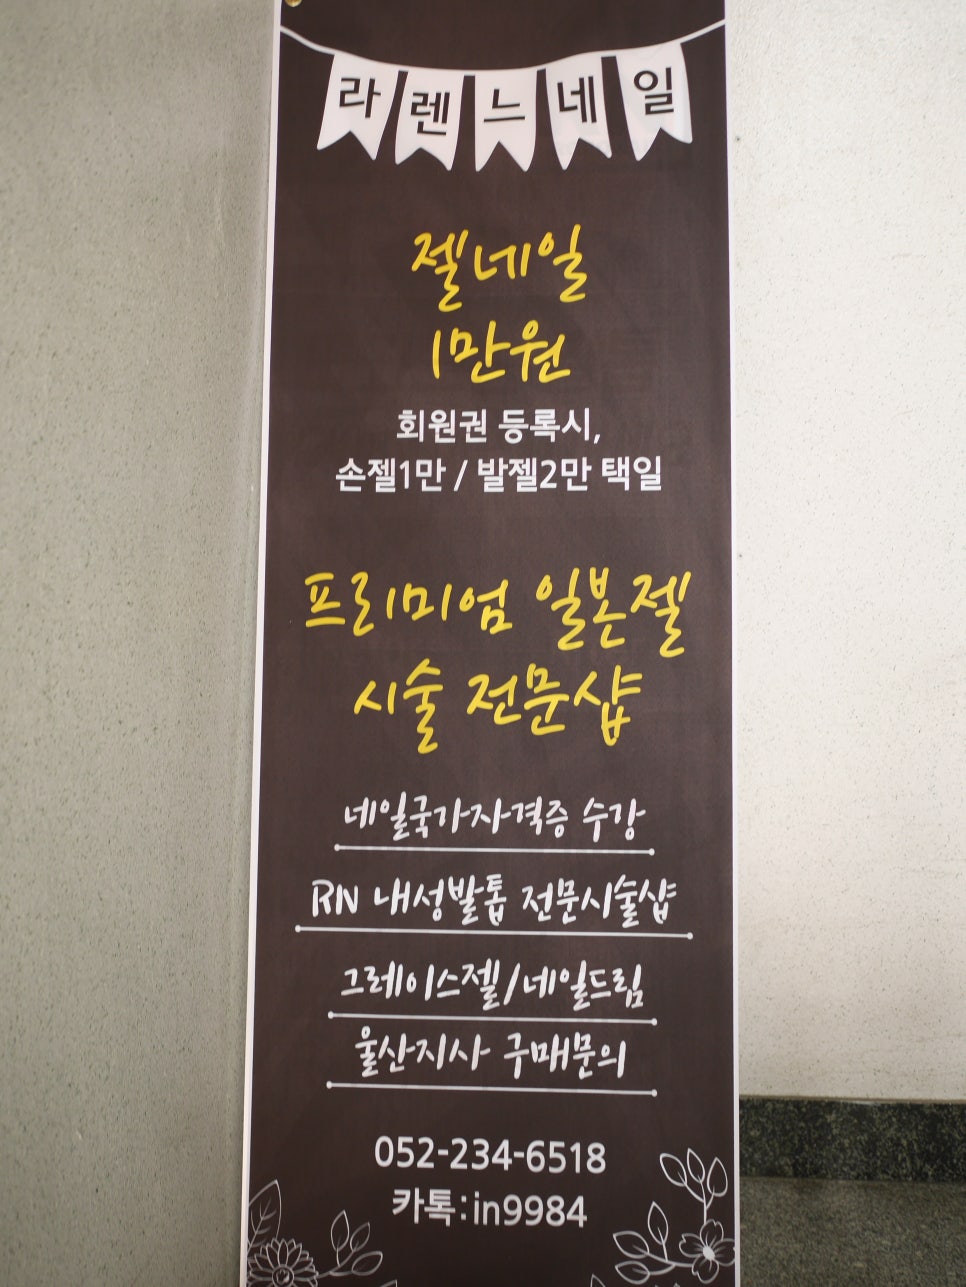 라렌느네일
젤네일
1만원
회원권 등록시,
손젤1만 / 발젤2만 택일
프리미엄 일본젤
시술 전문샵
네일국가자격증 수강
RN 내성발톱 전문시술샵
그레이스젤/네일드림
울산지사 구매문의
052-234-6518
카톡:in9984